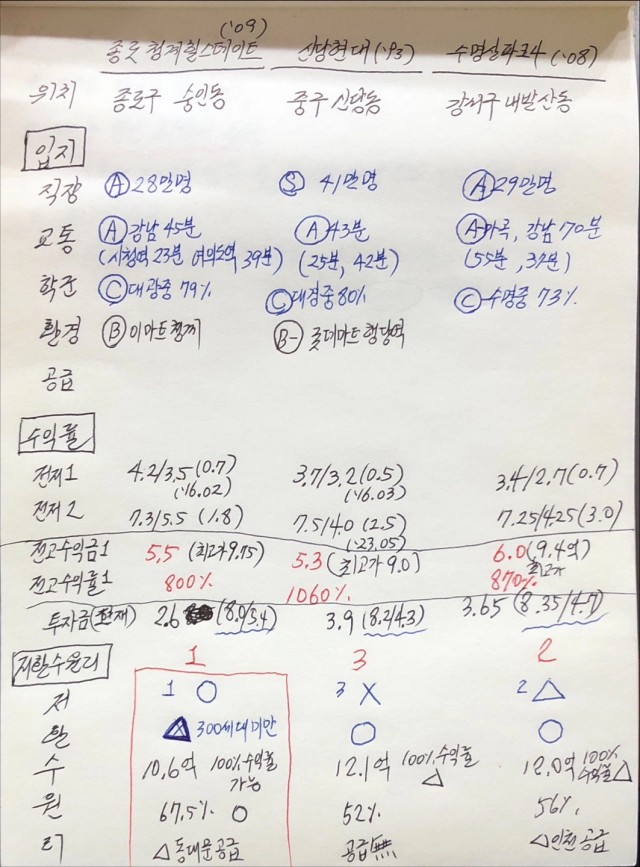 ('09)
종로청계힐스테이트 신당현대('93) 수명산파크4('08)
위치 종로구 숭인동 중구 신당동 강서구 내발산동
입지
직장 Ⓐ28만명 Ⓢ 41만명 Ⓐ29만명
교통 Ⓐ강남 45분 Ⓐ43분 Ⓐ마곡, 강남 70분
(시청역 23분 여의도역 39분) (25분, 42분) (55분, 37분)
학군 Ⓒ대광중 79% Ⓒ대경중 80% Ⓒ수명중 73%
환경 Ⓑ이마트청계 B- 롯데마트행당역
공급
수익률
전저1 4.2/3.5(0.7) 3.7/3.2(0.5) 3.4/2.7(0.7)
('16.02) ('16.03)
전저2 7.3/5.5 (1.8) 7.5/4.0 (2.5) 7.25/4.25(3.0)
('23.05)
전고수익금1 5.5 (최고가9.75) 5.3 (최고가 9.0) 6.0(9.4억)
최고가
전고수익률1 800% 1060% 870%
투자금(현재) 2.6 (8.0/5.4) 3.9 (8.2/4.3) 3.65 (8.35/4.7)
저환수원리 1 3 2
저 1 ○ 3 X 2 △
환 300세대미만 ○ ○
수 10.6억 100%수익률 가능 12.1억 100%수익률 △ 12.0억 100% 수익률△
원 67.5% ○ 52% 56%
리 △동대문공급 공급無 △인천공급